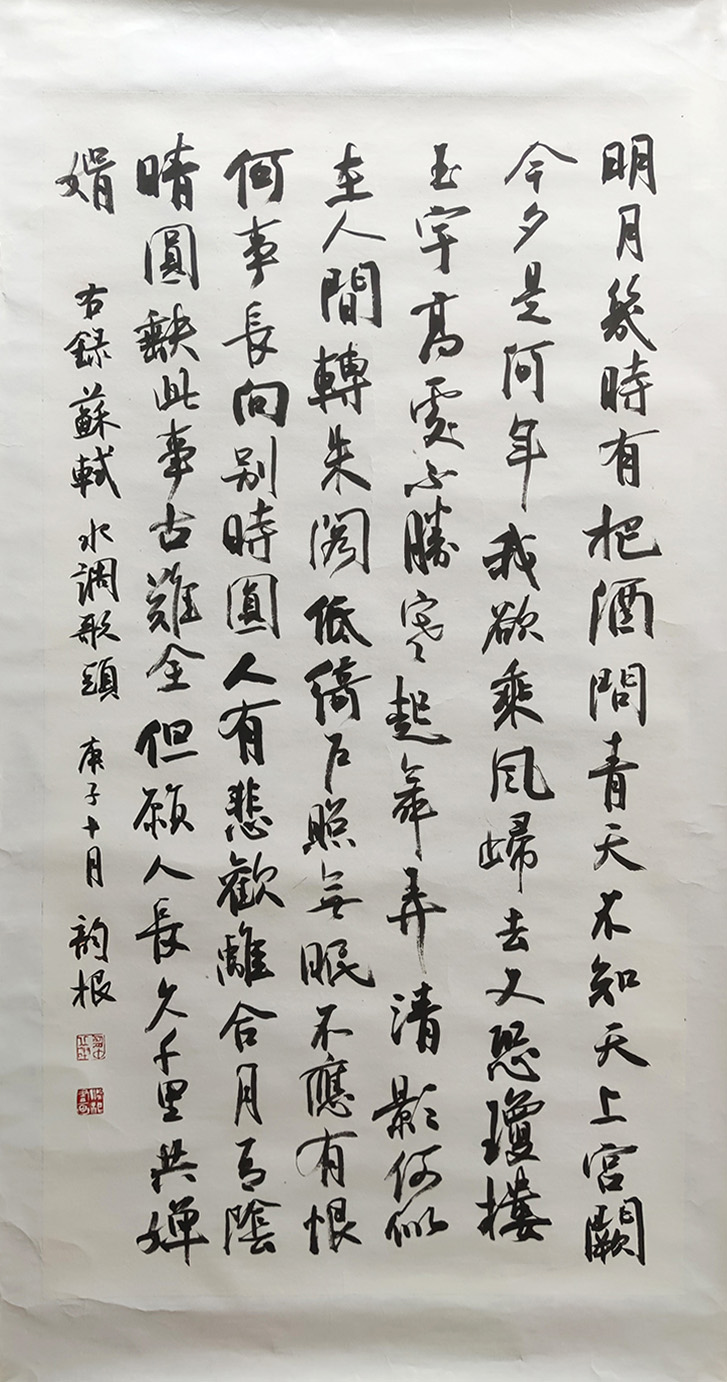 明月幾時有把酒問青天不知天上宮闕
今夕是何年我欲乘風歸去又恐瓊樓
玉宇高處不勝寒起舞弄清影何似
在人間轉朱閣低綺户照無眠不應有恨
何事長向别時圓人有悲歡離合月有陰
晴圓缺此事古難全但願人長久千里共嬋
娟 右録蘇軾水調歌頭 庚子十月 韵根